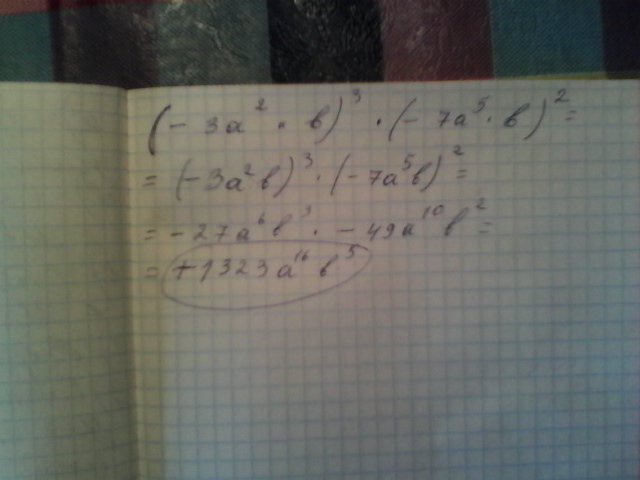 (- 3a² · в)³ · (- 7a⁵ · в)² =
= (-3a²в)³ · (-7a⁵в)² =
= -27a⁶в³ · -49a¹⁰в² =
= +1323a¹⁶в⁵